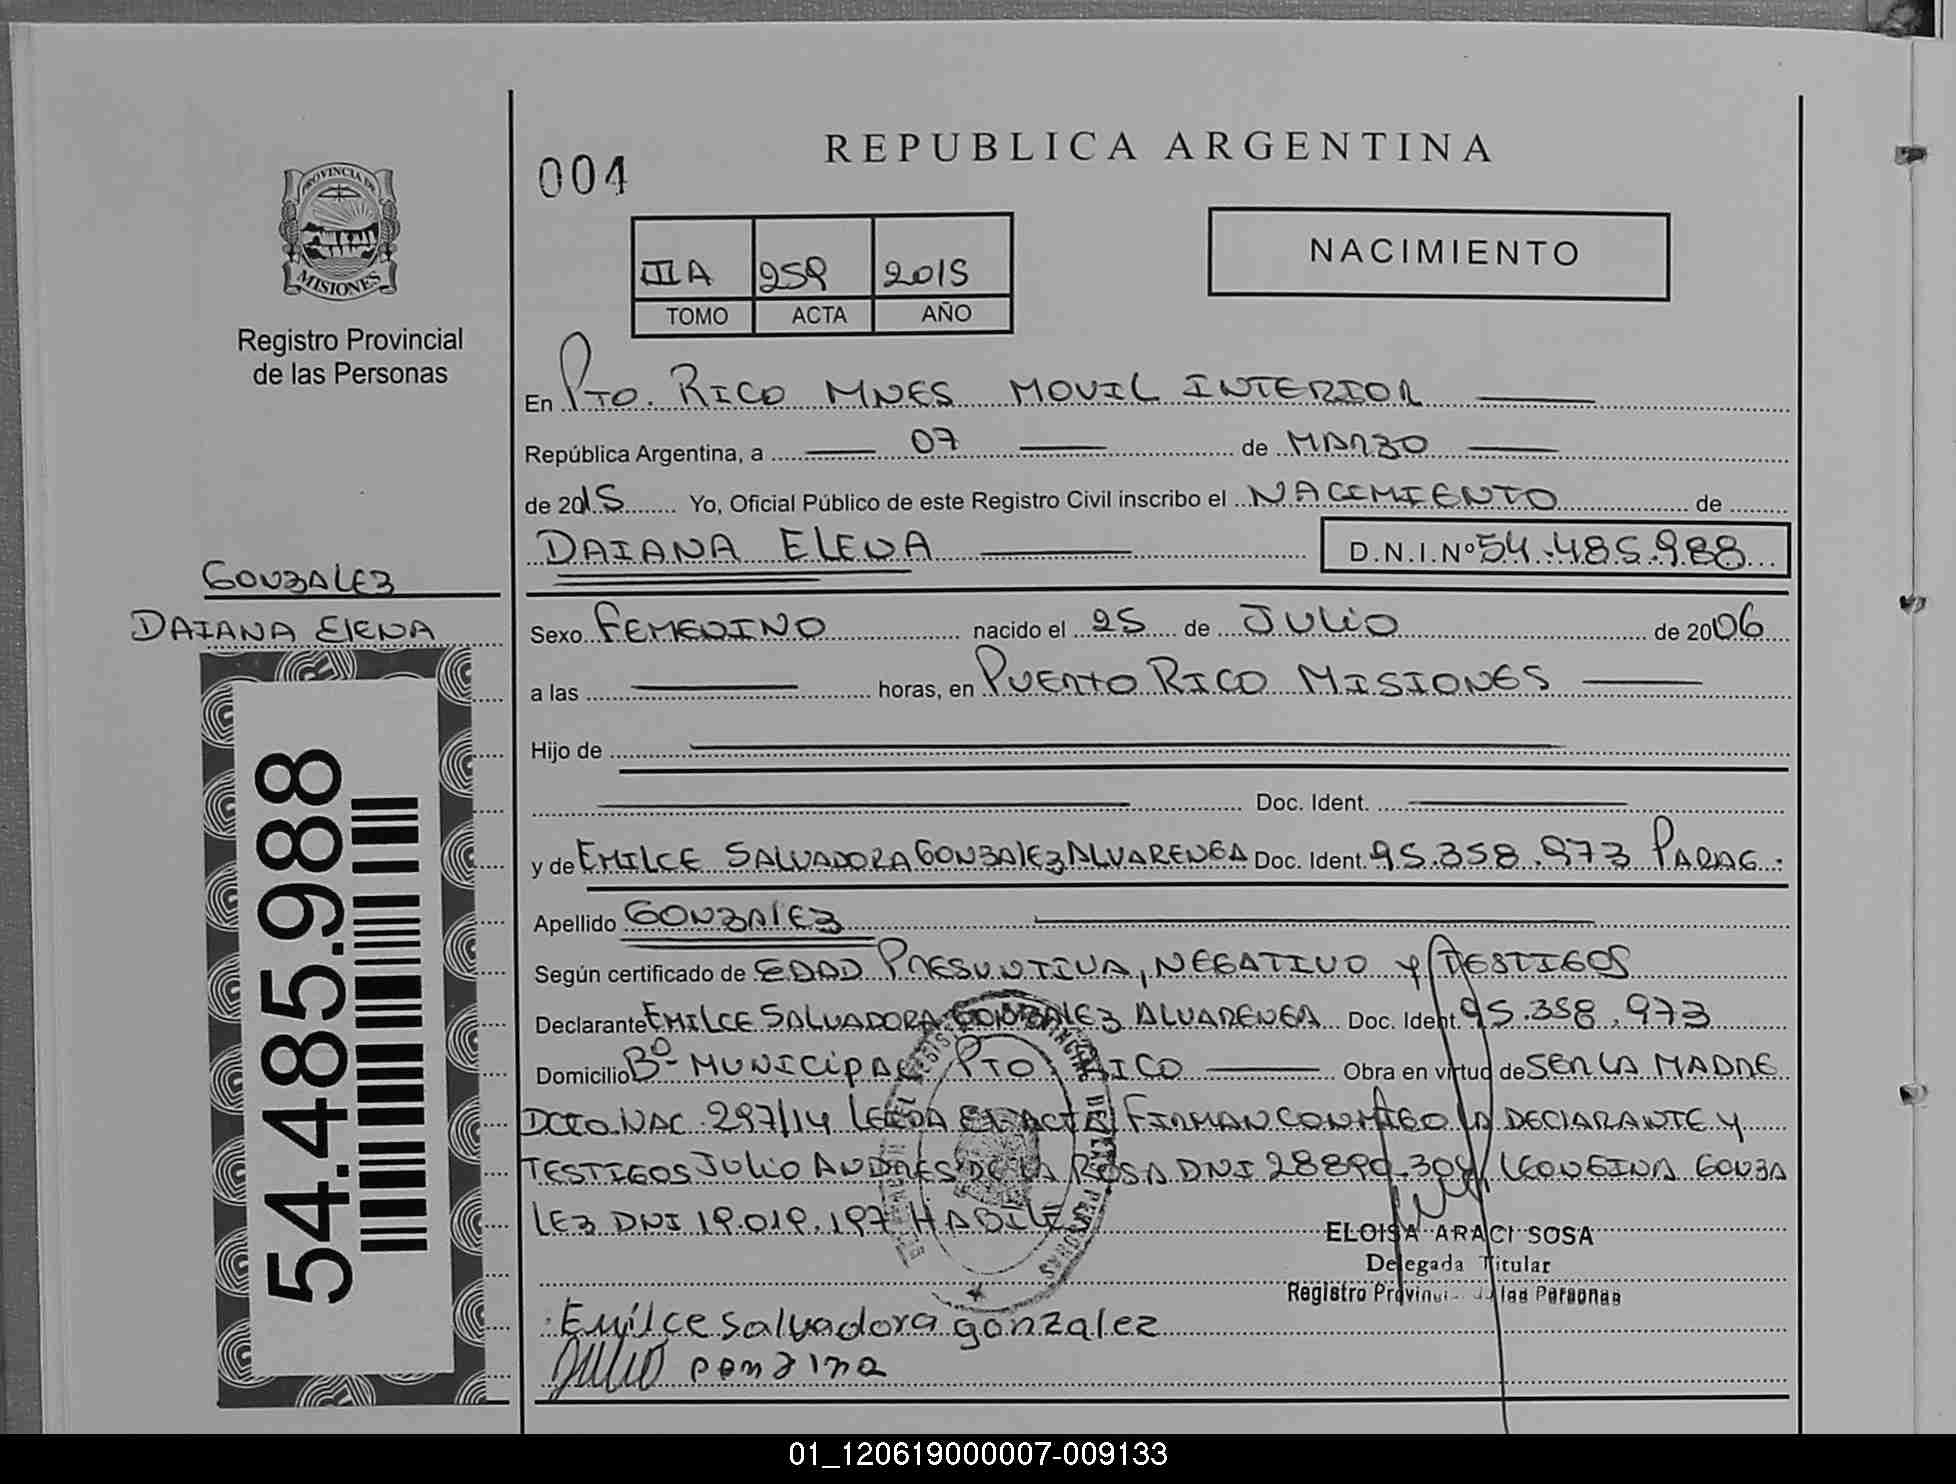 REPUBLICA ARGENTINA
004
PROVINCIA DE
MISIONES
Registro Provincial
de las Personas
III A 259 2015
TOMO ACTA AÑO
NACIMIENTO
En PTO. RICO MNES MOVIL INTERIOR
República Argentina, a 07 de MARZO
de 2015 Yo, Oficial Público de este Registro Civil inscribo el NACIMIENTO de
DAIANA ELENA D.N.I.Nº 54.485.988
GONZALEZ
DAIANA ELENA
54.485.988
Sexo FEMENINO nacido el 25 de JULIO de 2006
a las horas, en PUERTO RICO MISIONES
Hijo de
Doc. Ident.
y de EMILCE SALVADORA GONZALEZ ALVARENGA Doc. Ident. 95.358.973 PARAG.
Apellido GONZALEZ
Según certificado de EDAD PRESUNTIVA, NEGATIVO Y TESTIGOS
Declarante EMILCE SALVADORA GONZALEZ ALVARENGA Doc. Ident. 95.358.973
Domicilio Bº MUNICIPAL PTO RICO Obra en virtud de SER LA MADRE
DCTO NAC. 297/14 LEIDA EL ACTA FIRMAN CONMIGO LA DECLARANTE Y
TESTIGOS JULIO ANDRES DE LA ROSA DNI LEONGINA GONZA
LEZ DNI 19.019.197 HABILES
ELOISA ARACI SOSA
Delegada Titular
Registro Provincial de las Personas
Emilce salvadora gonzalez
01_120619000007-009133